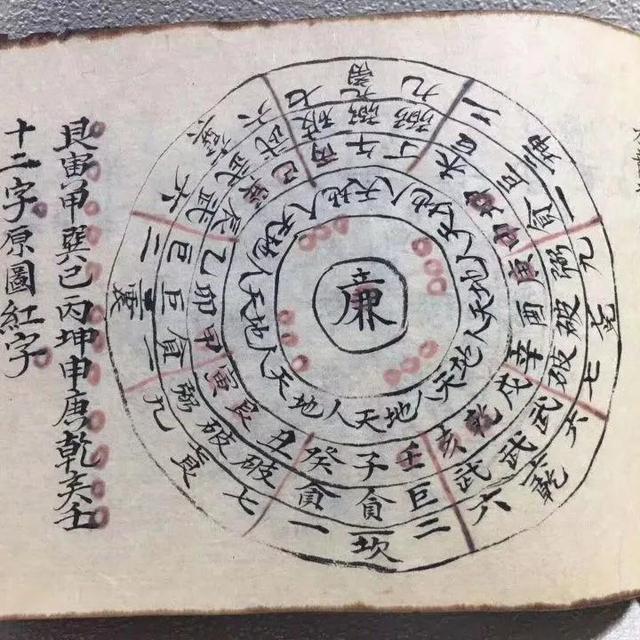 艮寅甲巽巳丙坤申庚乾亥壬
十二字原圖紅字
廉
天地人天地人天地人天地人天地人天地人天地人天地人
子癸丑艮寅甲卯乙辰巽巳丙午丁未坤申庚酉辛戌乾亥壬
貪貪破破弼貪巨巨武武武破弼弼巨貪弼破破武武武巨
坎一七艮九二震二六巽六七離九二坤一九兌七六乾六二